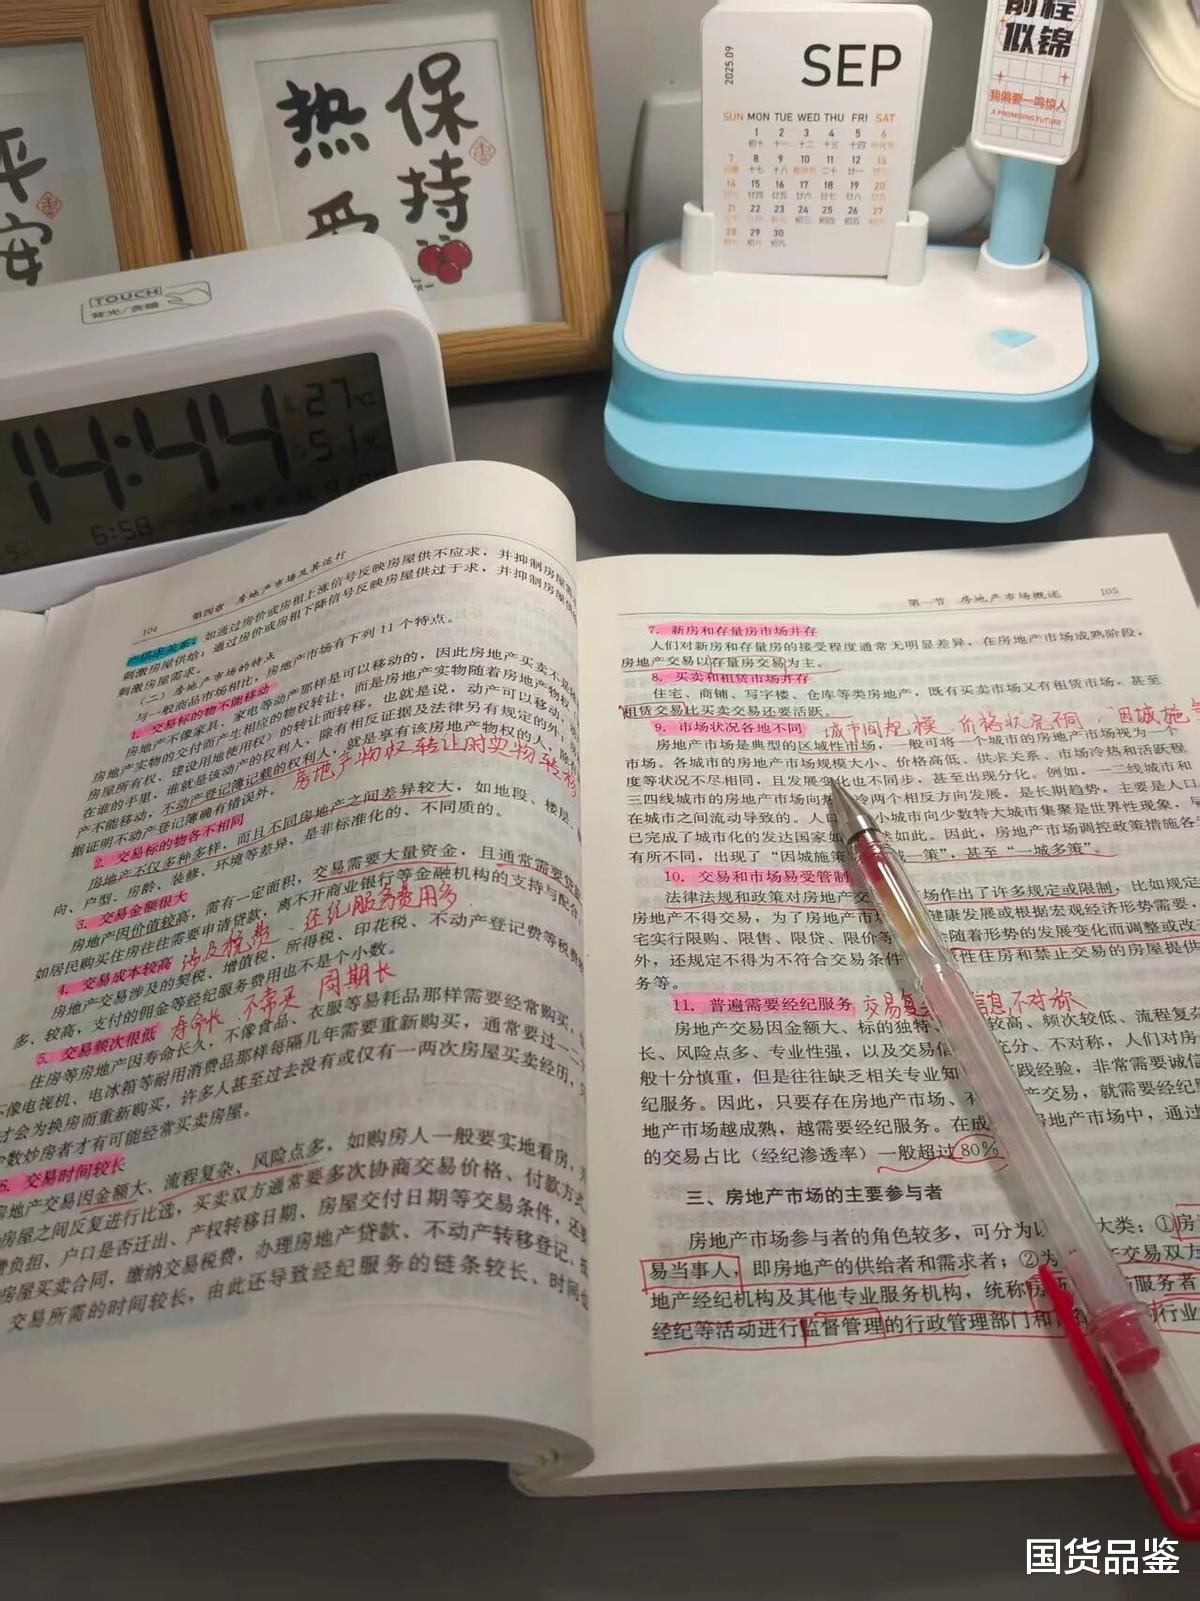 平
安
热
爱
保
持
2025.09
SEP
SUN MON TUE WED THU FRI SAT
1 2 3 4 5 6
初十 十一 十二 十三 十四 中元节
7 8 9 10 11 12 13
十七 十八 二十 廿一 廿二
14 15 16 17 18 19 20
廿四 廿五 廿六 廿七 廿八 廿九
21 22 23 24 25 26 27
初三 初四 初五
28 29 30
初七 初八 初九
前程
似锦
我偏要一鸣惊人
A PROMISING FUTURE
TOUCH
背光/贪睡
14:44
27℃
51%
6:58
104 第四章 房地产市场及其运行
产供求关系:如通过房价或房租上涨信号反映房屋供不应求,并抑制房屋
刺激房屋供给;通过房价或房租下降信号反映房屋供过于求,并抑制房屋供
刺激房屋需求。
(二)房地产市场的特点
与一般商品市场相比,房地产市场有下列11个特点。
1. 交易标的物不能移动
房地产不像家具、家电等动产那样是可以移动的,因此房地产买卖不是
房地产实物的交付而产生相应的物权转让,而是房地产实物随着房地产物权
房屋所有权、建设用地使用权)的转让而转移。也就是说,动产可以移动,
在谁的手里,谁就是该动产的权利人,除有相反证据及法律另有规定的外,
产不能移动,不动产登记簿记载的权利人,就是享有该房地产物权的人,除
据证明不动产登记簿确有错误外。
房地产物权转让时实物转移
2. 交易标的物各不相同
房地产不仅多种多样,而且不同房地产之间差异较大,如地段、楼层、
向、户型、房龄、装修、环境等差异,是非标准化的、不同质的。
3. 交易金额很大
房地产因价值较高,需有一定面积,交易需要大量资金,且通常需要贷款
如居民购买住房往往需要申请贷款,离不开商业银行等金融机构的支持与配合
4. 交易成本较高 涉及税费、经纪服务费用多
房地产交易涉及的契税、增值税、所得税、印花税、不动产登记费等税费
多、较高,支付的佣金等经纪服务费用也不是个小数。
5. 交易频次很低 寿命长 不常买 周期长
住房等房地产因寿命长久,不像食品、衣服等易耗品那样需要经常购买,也
不像电视机、电冰箱等耐用消费品那样每隔几年需要重新购买,通常要过一二十
才会为换房而重新购买,许多人甚至过去没有或仅有一两次房屋买卖经历,
少数炒房者才有可能经常买卖房屋。
6. 交易时间较长
房地产交易因金额大、流程复杂、风险点多,如购房人一般要实地看房,
房屋之间反复进行比选,买卖双方通常要多次协商交易价格、付款方式
费负担、户口是否迁出、产权转移日期、房屋交付日期等交易条件,还
房屋买卖合同,缴纳交易税费,办理房地产贷款、不动产转移登记、
交易所需的时间较长,由此还导致经纪服务的链条较长、时间
第一节 房地产市场概述 105
7. 新房和存量房市场并存
人们对新房和存量房的接受程度通常无明显差异,在房地产市场成熟阶段,
房地产交易以存量房交易为主。
8. 买卖和租赁市场并存
住宅、商铺、写字楼、仓库等类房地产,既有买卖市场又有租赁市场。甚至
租赁交易比买卖交易还要活跃。
9. 市场状况各地不同 城市间规模、价格状况不同,"因城施策
房地产市场是典型的区域性市场,一般可将一个城市的房地产市场视为一个
市场。各城市的房地产市场规模大小、价格高低、供求关系、市场冷热和活跃程
度等状况不尽相同,且发展变化也不同步,甚至出现分化。例如,一二线城市和
三四线城市的房地产市场向热 冷两个相反方向发展,是长期趋势,主要是人口
在城市之间流动导致的。人口 小城市向少数特大城市集聚是世界性现象,早
已完成了城市化的发达国家如 然如此。因此,房地产市场调控政策措施各
有所不同,出现了“因城施策” 城一策”,甚至“一城多策”。
10. 交易和市场易受管制
法律法规和政策对房地产交 场作出了许多规定或限制,比如规定
房地产不得交易,为了房地产市 健康发展或根据宏观经济形势需要,
宅实行限购、限售、限贷、限价等 会随着形势的发展变化而调整或改
外,还规定不得为不符合交易条件 性住房和禁止交易的房屋提供
务等。
11. 普遍需要经纪服务 交易复 信息不对称
房地产交易因金额大、标的独特 较高、频次较低、流程复杂
长、风险点多、专业性强,以及交易信 充分、不对称,人们对房
般十分慎重,但是往往缺乏相关专业知 践经验,非常需要诚信
纪服务。因此,只要存在房地产市场、 产交易,就需要经纪服
地产市场越成熟,越需要经纪服务。在成 房地产市场中,通过
的交易占比(经纪渗透率)一般超过80%
三、房地产市场的主要参与者
房地产市场参与者的角色较多,可分为以 大类:①房
易当事人,即房地产的供给者和需求者;②为 产交易双方
地产经纪机构及其他专业服务机构,统称房 服务者
经纪等活动进行监督管理的行政管理部门和 行业
国货品鉴